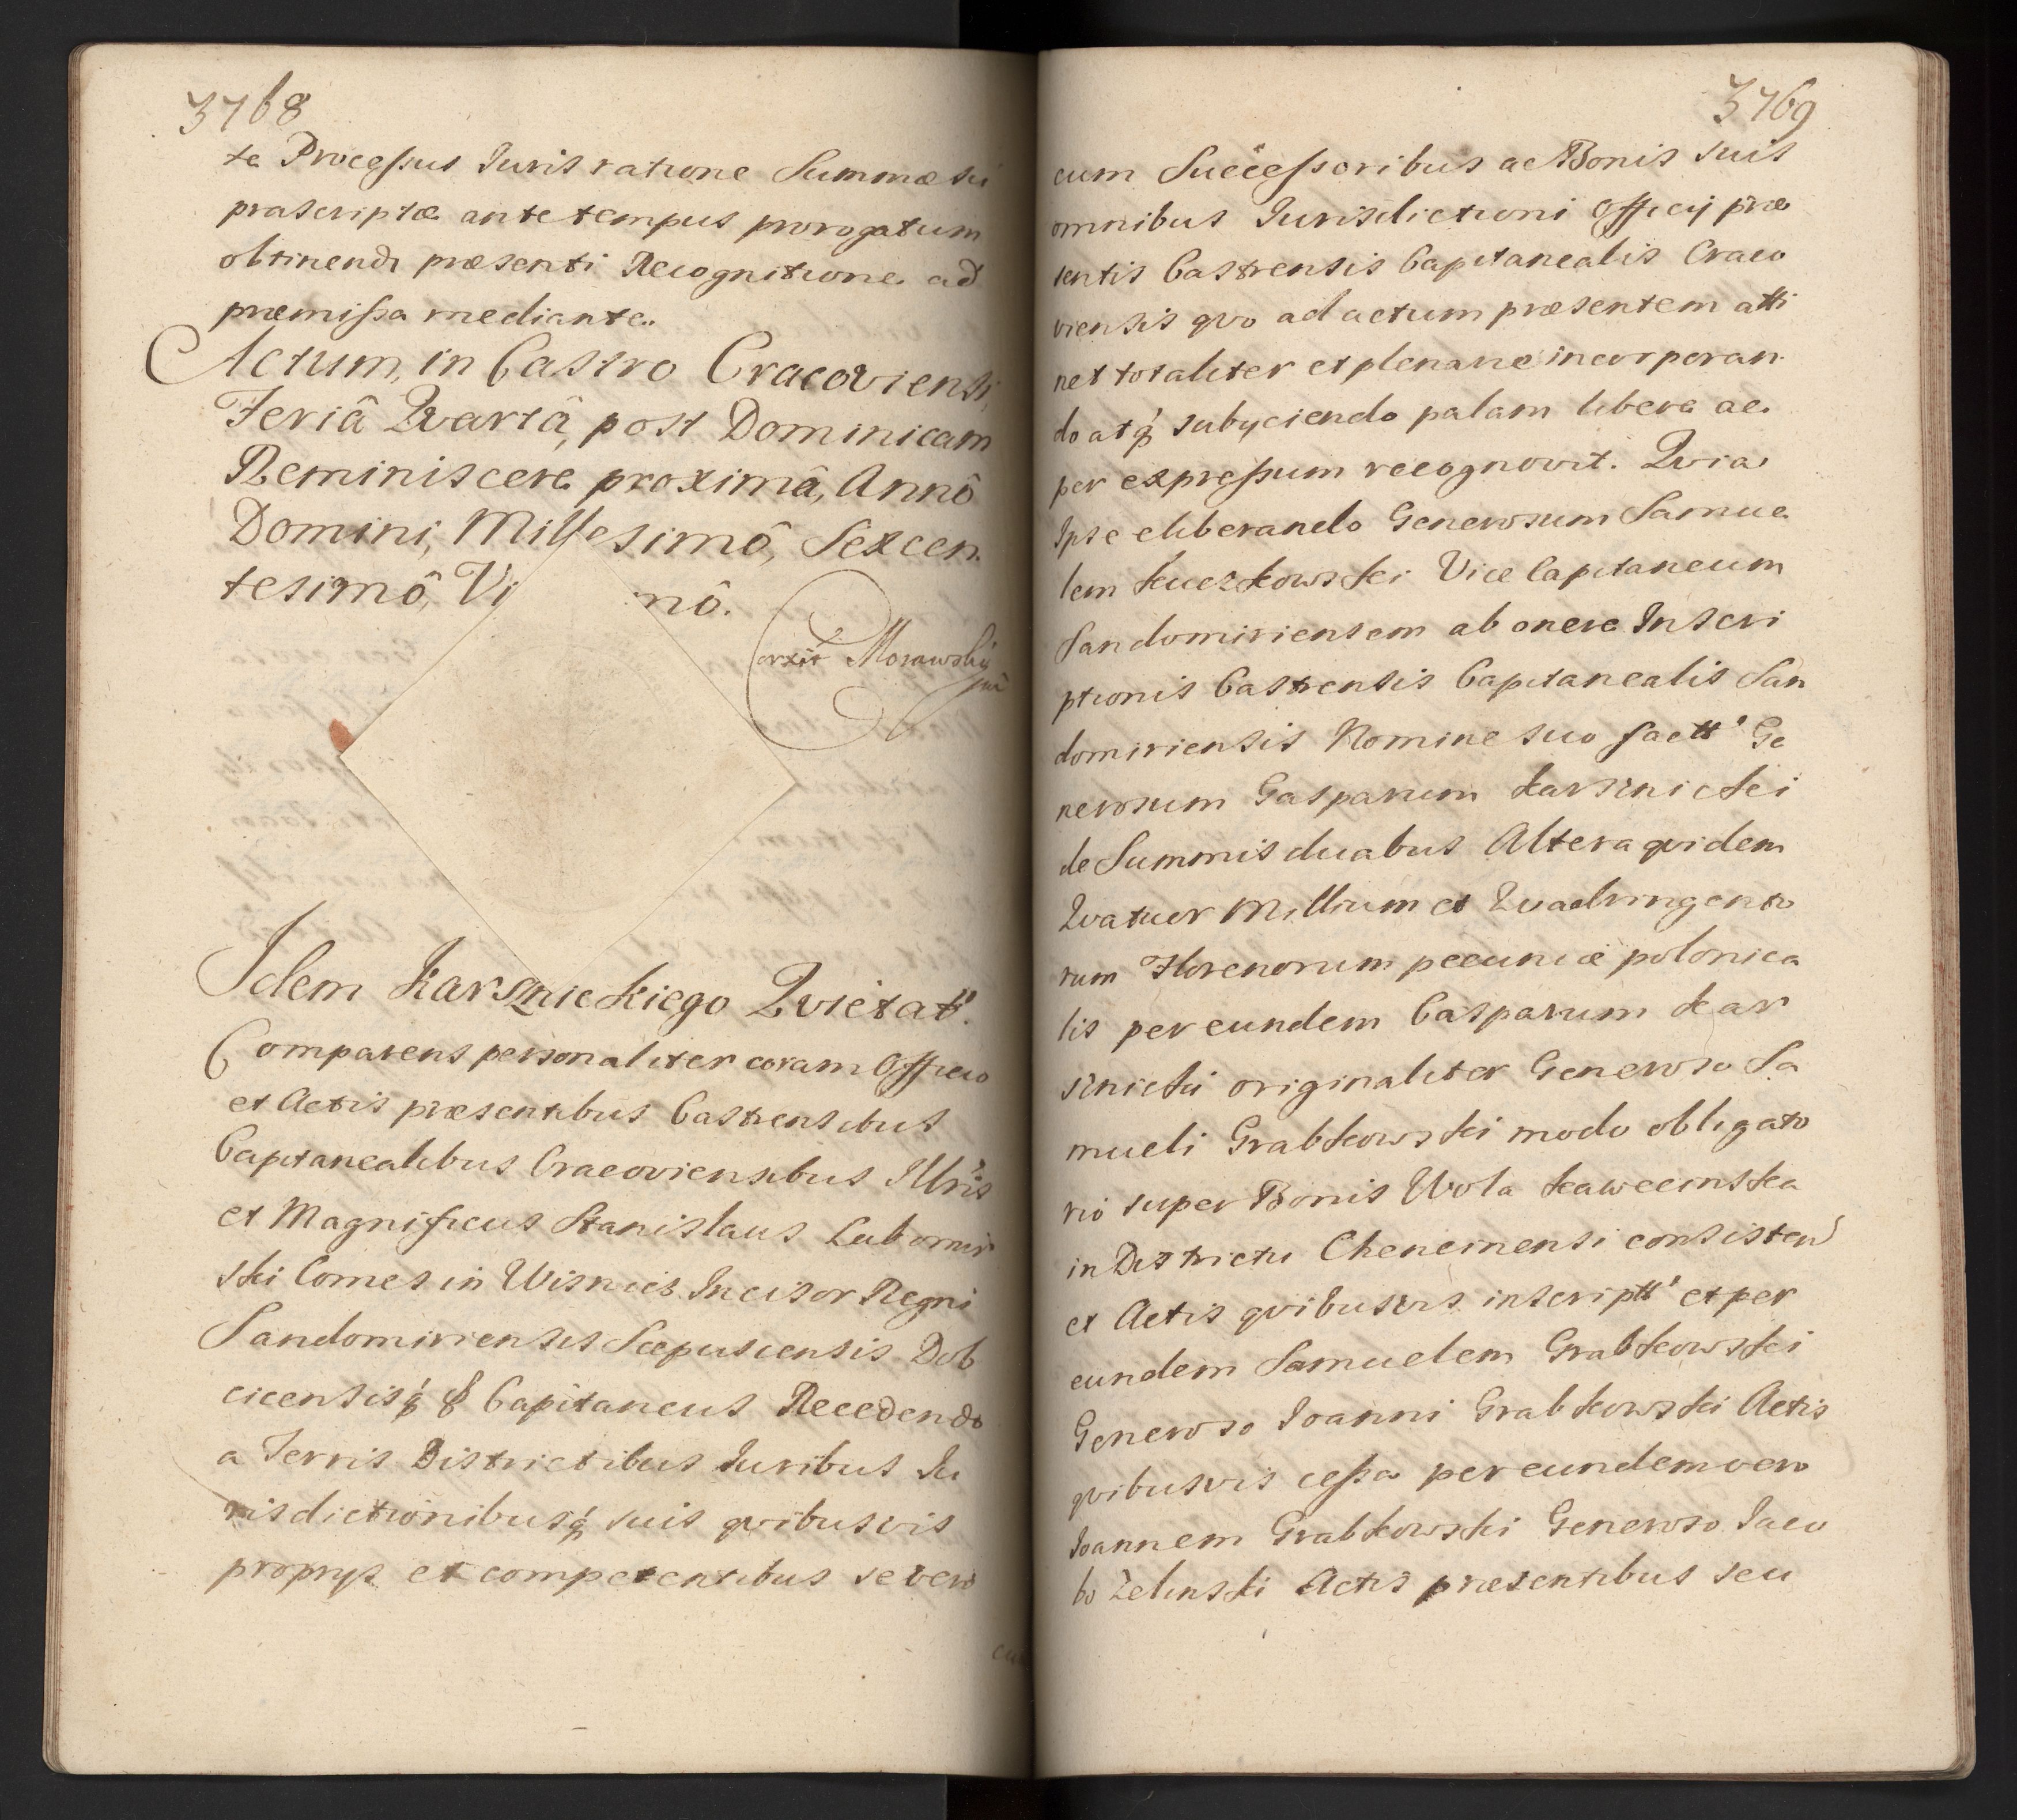 3768
te Processus Juris ratione Summæ su
præscriptæ ante tempus prorogatum
obtinendi præsenti Recognitione ad
præmissa mediante.
Actum, in Castro Cracoviensi,
Feriâ Qvartâ, post Dominicam
Reminiscere proximâ, Annô
Domini, Millesimô, Sexcen
tesimô, Vi nô.
Corxit Morawski
Idem Karsznickiego Qvietat.
Comparens personaliter coram Officio
et Actis præsentibus Castrensibus
Capitanealibus Cracoviensibus Illris
et Magnificus Stanislaus Lubomir
ski Comes in Wisnicz Incisor Regni
Sandomiriensis Scepusiensis Dob
cicensisq & Capitaneus Recedendo
a Terris Districtibus Juribus Ju
risdictionibusq suis qvibusvis
proprys et competentibus se vero
cum
3769
cum Successoribus ac Bonis suis
omnibus Jurisdictioni Officij præ
sentis Castrensis Capitanealis Craco
viensis qvo ad actum præsentem atti
net totaliter et plenarie incorporan
do atq subyciendo palam libere ac
per expressum recognovit. Qvia
Ipse eliberando Generosum Samue
lem Kuczkowski Vice Capitaneum
Sandomiriensem ab onere Inscri
ptionis Castrensis Capitanealis San
domiriensis Nomine suo factt Ge
nerosum Gasparum Karsznicki
de Summis duabus Altera qvidem
Qvatuor Millium et Qvadringento
rum Florenorum pecuniæ polonica
lis per eundem Casparum Kar
sznicki originaliter Generoso Sa
mueli Grabkowski modo obligato
rio super Bonis Wola Kawecinska
in Districtu Chencinensi consisten
et Actis qvibusvis inscriptt et per
eundem Samuelem Grabkowski
Generoso Joanni Grabkowski Actis
qvibusvis cessa per eundem vero
Joannem Grabkowski Generoso Jaco
bo Zelinski Actis præsentibus seu